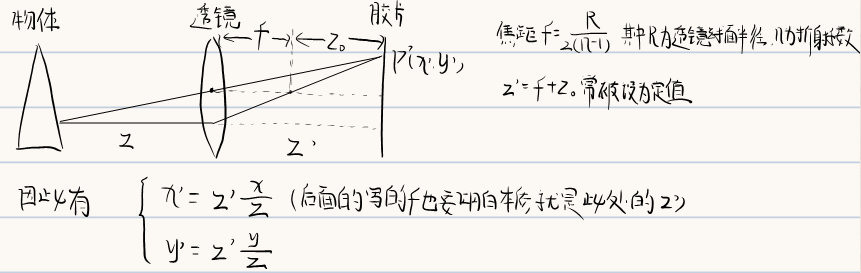 物体 透镜 胶片
f z₀
P'(x', y')
焦距 f = R/2(n-1) 其中R为透镜球面半径, n为折射系数
z' = f + z₀ 常被设为定值
z z'
因此有 { x' = z' x/z (后面的写的f也要明白本质就是此处的z')
y' = z' y/z